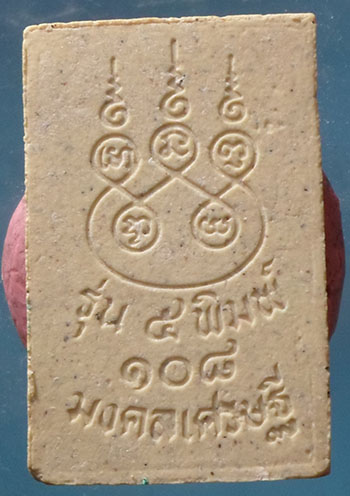 รุ่น ๕ พิมพ์
๑๐๘
มงคลเศรษฐี